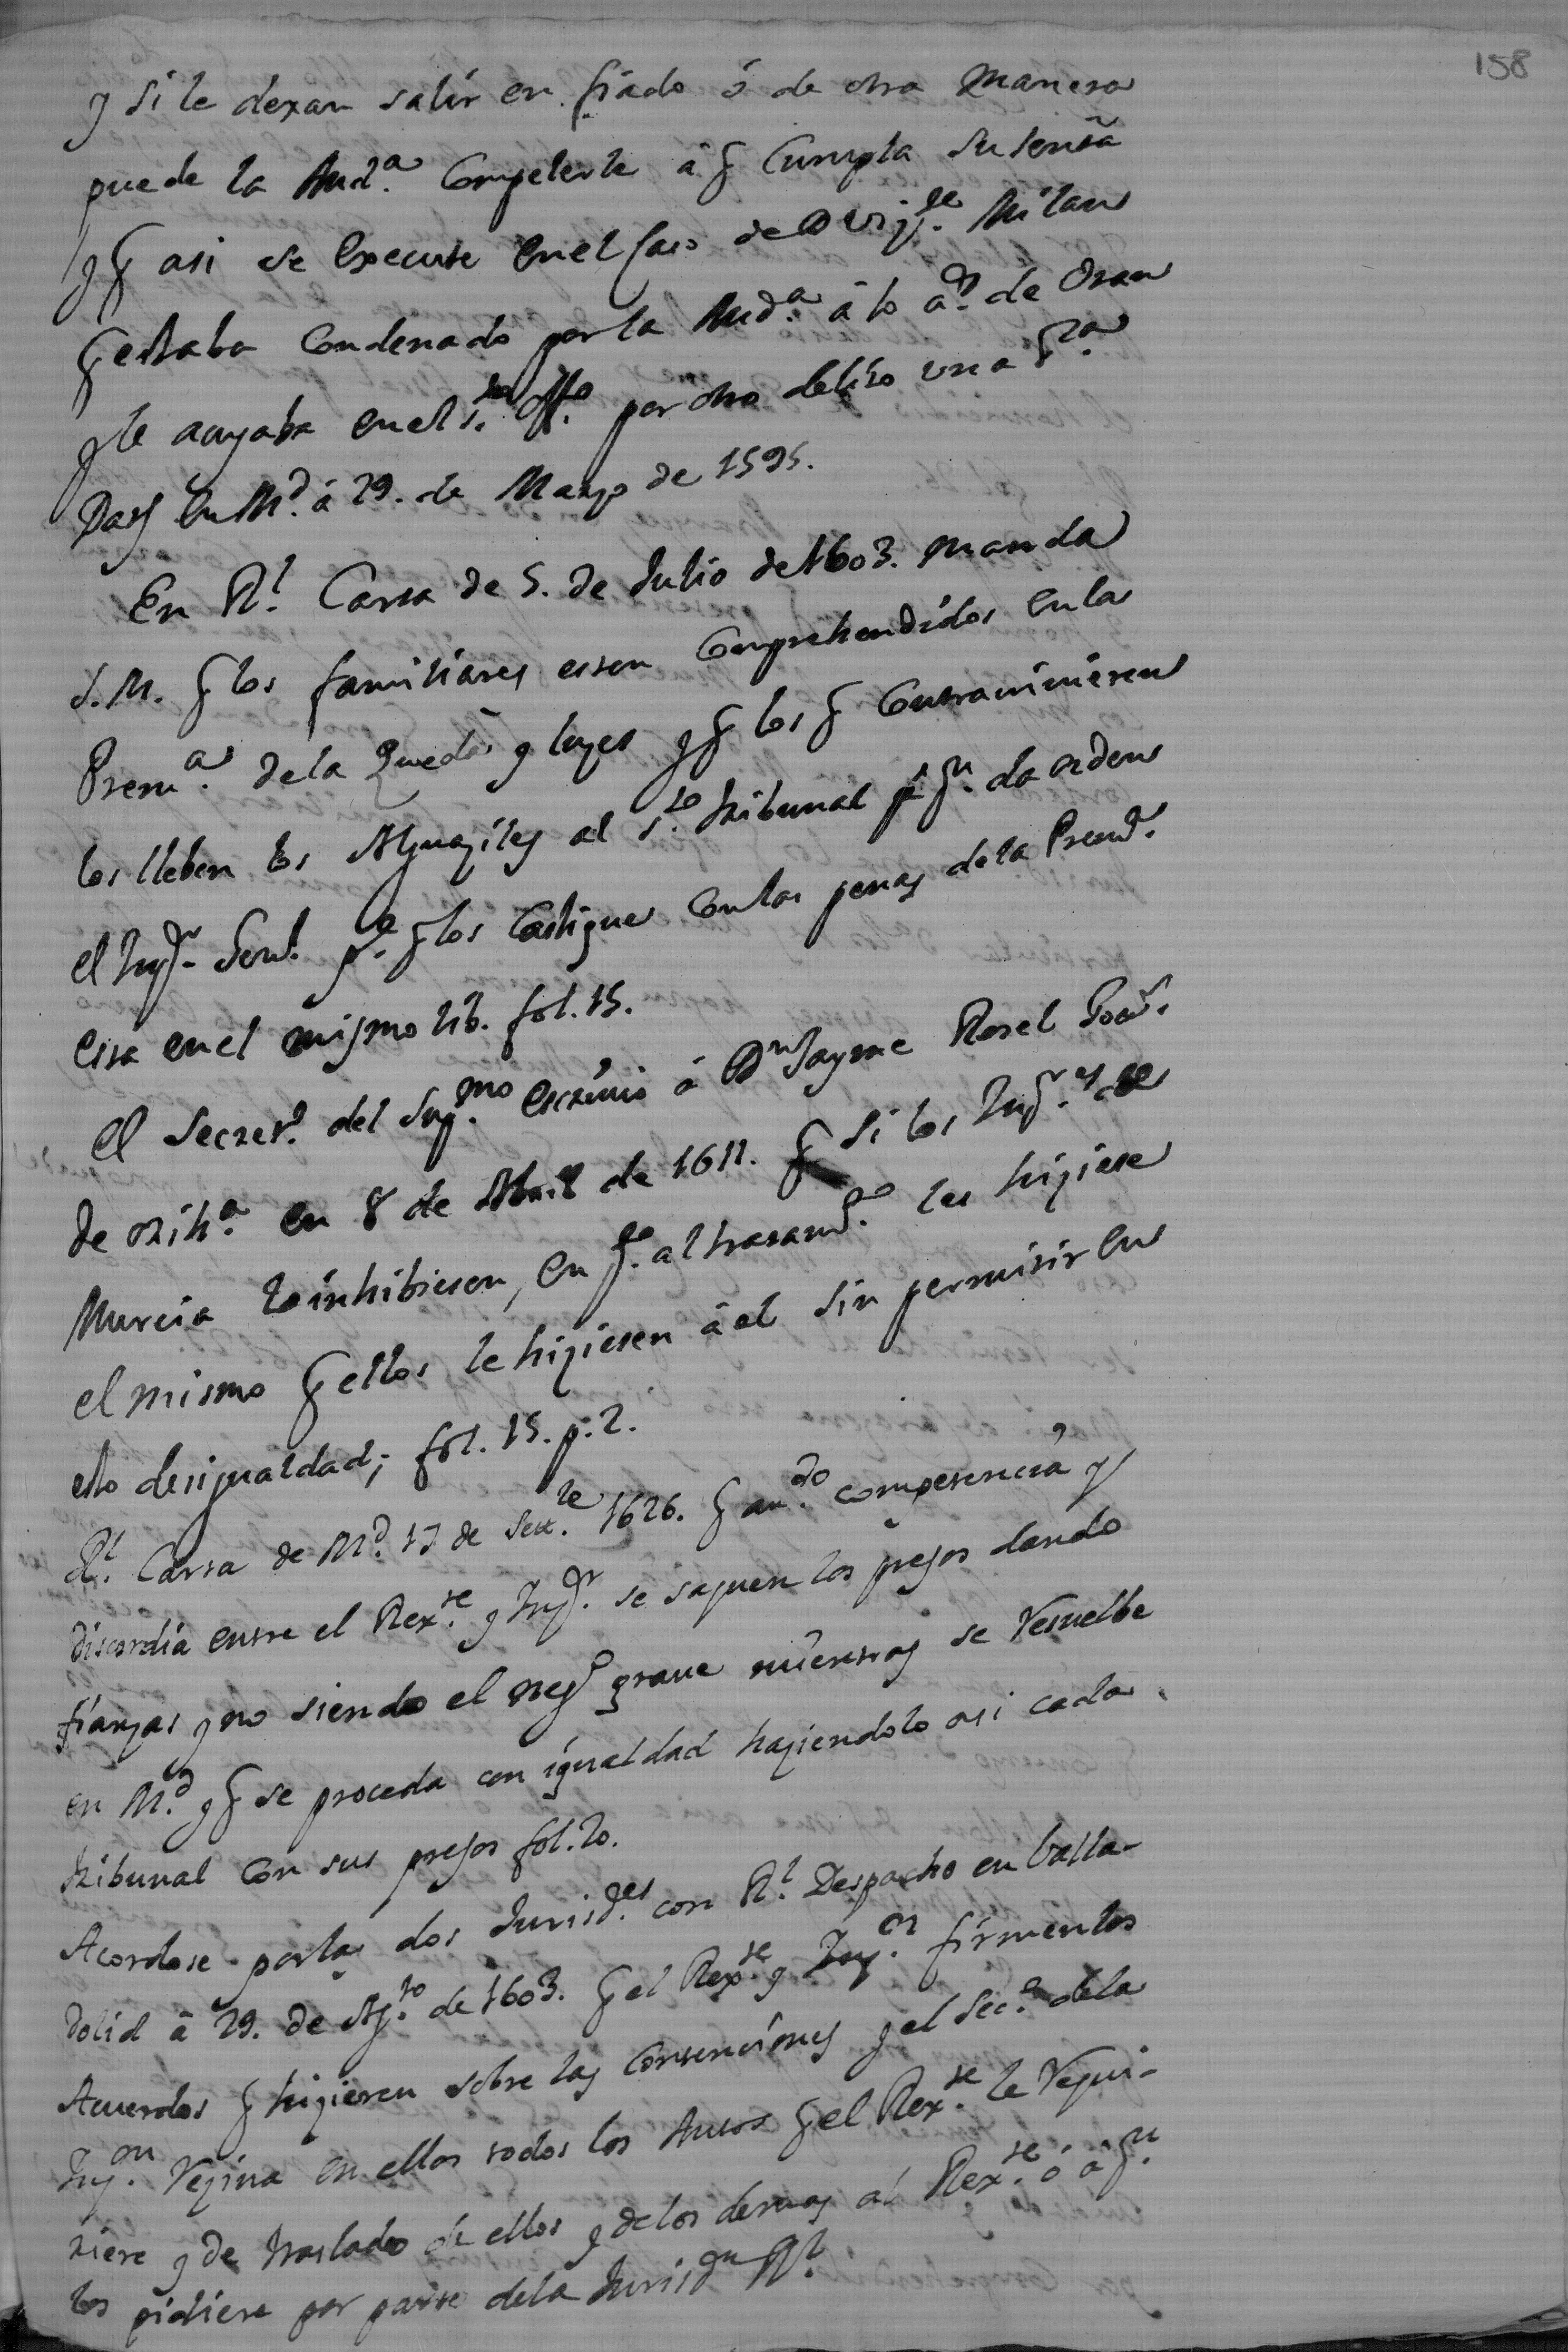 158
y si le dexan salir en fiado ó de otra manera
puede la Aud.ª Compelerle á q Cumpla su sentª
y q asi se execute en el Caso de D Viz.te Milan
q estaba Condenado por la Aud.ª á 10 a.s de Oran
y le acuzaba en el s.to Off.o por otro delito una
Dat en M.d á 29. de Marzo de 1595.
En R.l Carta de 5. de Julio de 1603. manda
S.M. q los familiares esten Comprehendidos en la
Prem.as de la Queda y leyes y q los q Contravinieren
los lleben los Alguaziles al s.to tribunal da orden
el Inq.r Genl. p.ª q los Castigue con las penas de la Prem.
esta en el mismo lib. fol. 15.
El Secret.o del Sup.mo escrivio á D.n Jayme Rosel Gov.r
de Orih.ª en 8 de Abril de 1611. q si los Inq.res de
Murcia le inhibiesen, en q.to al tratam.to les hiziese
el mismo q ellos le hiziesen á el sin permitir en
esto desigualdad; fol. 15. p. 2.
R.l Carta de M.d 17 de Set.re 1626. q av.do competencia y
discordia entre el Rex.te y Inq.r se saquen los presos dando
fianzas y no siendo el neg.o grave mientras se resuelbe
en M.d y q se proceda con igualdad haziendolo asi cada
tribunal con sus presos fol. 20.
Acordose por las dos Jurisd.es con R.l Despacho en Valla-
dolid á 29. de Ag.to de 1603. q el Rex.te y Inq.or firmen los
Acuerdos q hizieren sobre las Contenciones y el Sec.o de la
Inq.on Reziva en ellos todos los Autos q el Rex.te le requi-
riere y de traslado de ellos y de los demas al Rex.te ó á q.n
los pidiere por parte de la Jurisd.n R.l